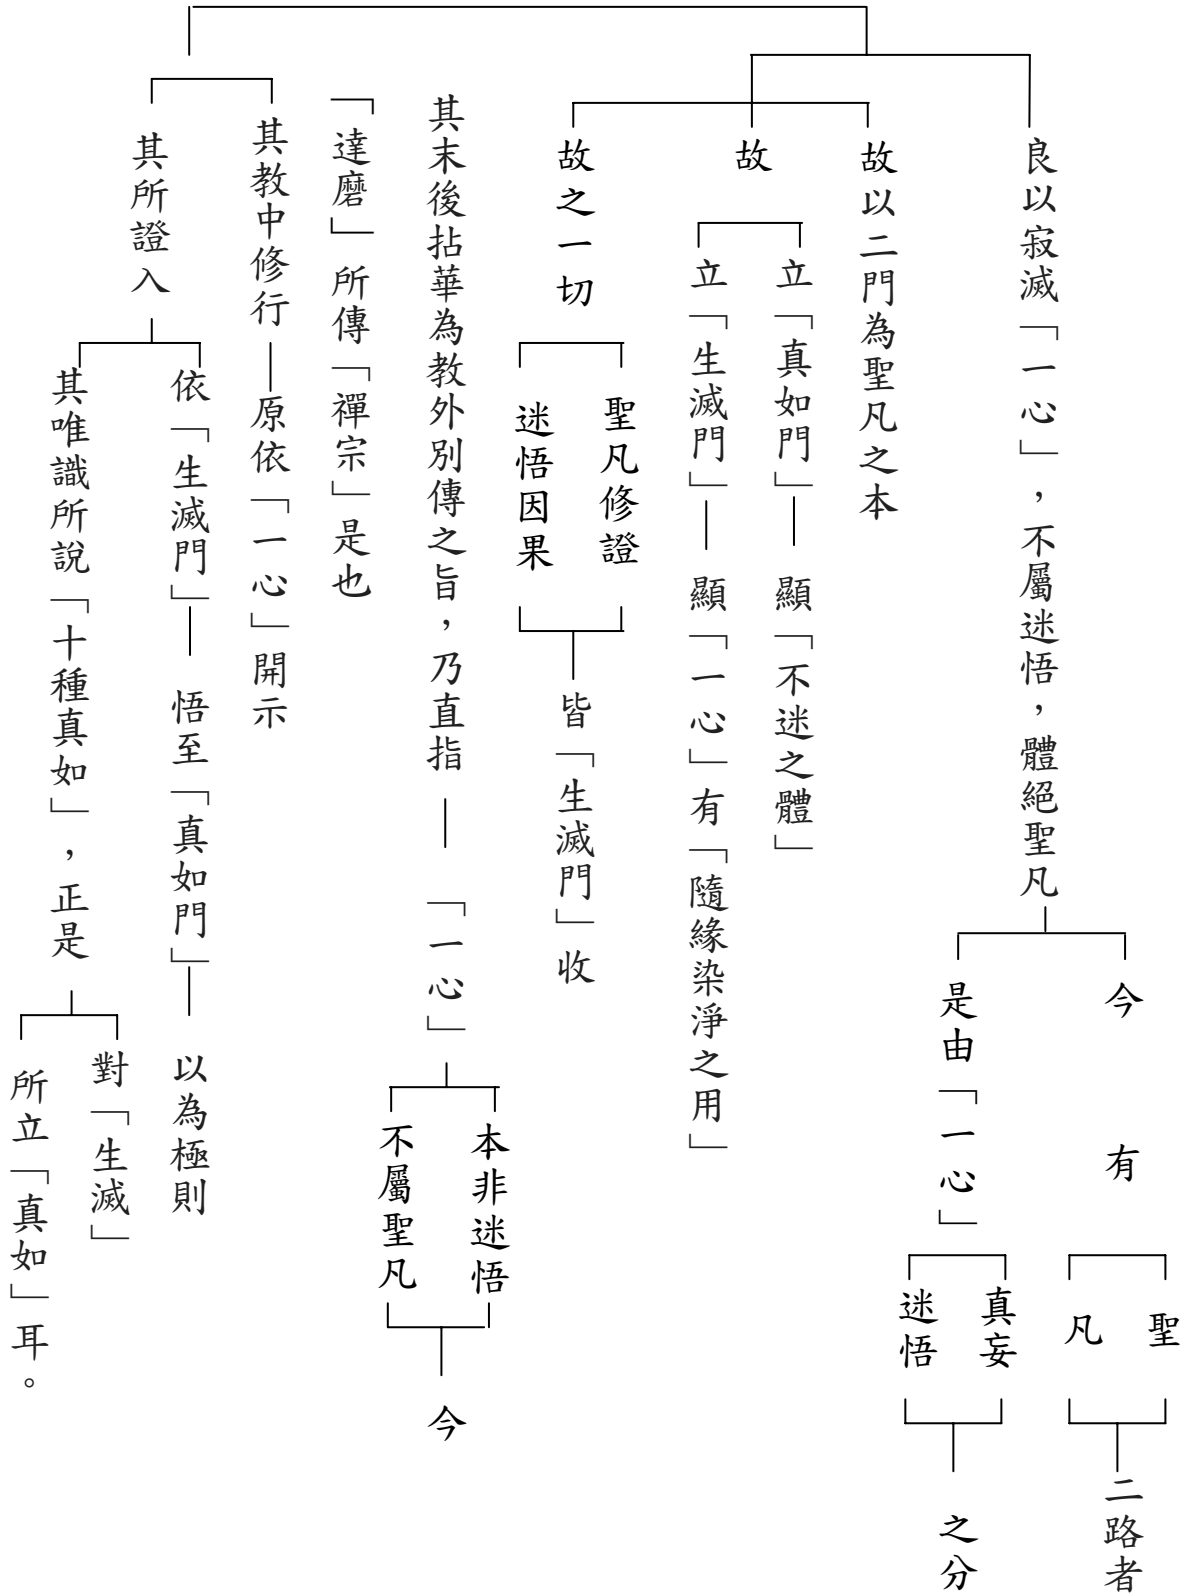 良以寂滅「一心」，不屬迷悟，體絕聖凡
今有
聖
凡
二路者
是由「一心」
真妄
迷悟
之分
故以二門為聖凡之本
故
立「真如門」
顯「不迷之體」
立「生滅門」
顯「一心」有「隨緣染淨之用」
故之一切
聖凡修證
迷悟因果
皆「生滅門」收
其末後拈華為教外別傳之旨，乃直指
「一心」
本非迷悟
不屬聖凡
今
「達磨」所傳「禪宗」是也
其教中修行
原依「一心」開示
其所證入
依「生滅門」
悟至「真如門」
以為極則
其唯識所說「十種真如」，正是
對「生滅」
所立「真如」耳。